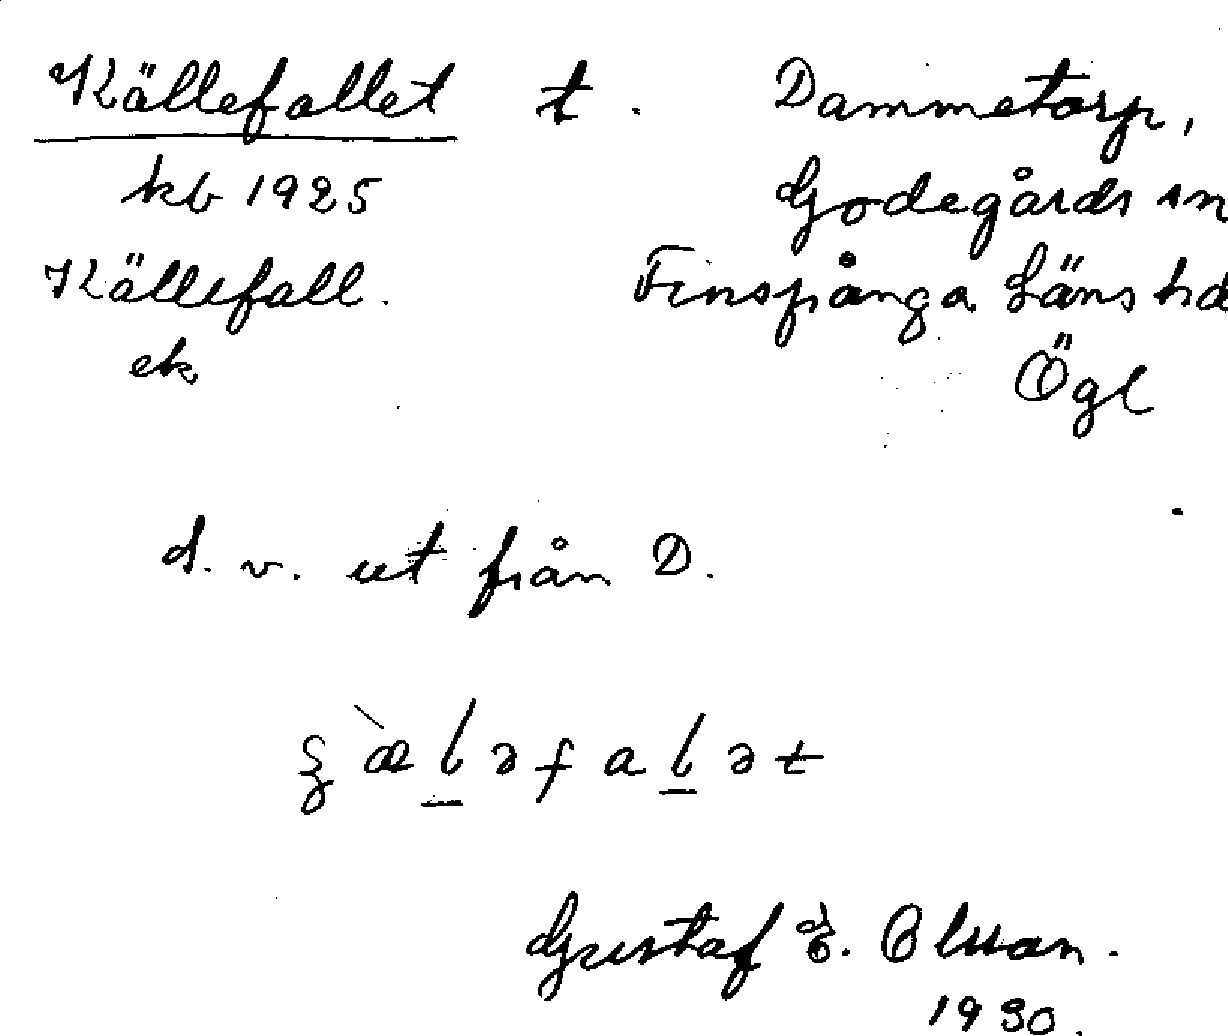 Källefallet t. Dammetorp,
kb 1925 Godegårds sn
Källefall. Finspånga Läns hd
ek Ögl
d. v. ut från D.
ʂæ̀lǝfalǝt
Gustaf E. Olsson.
1930.